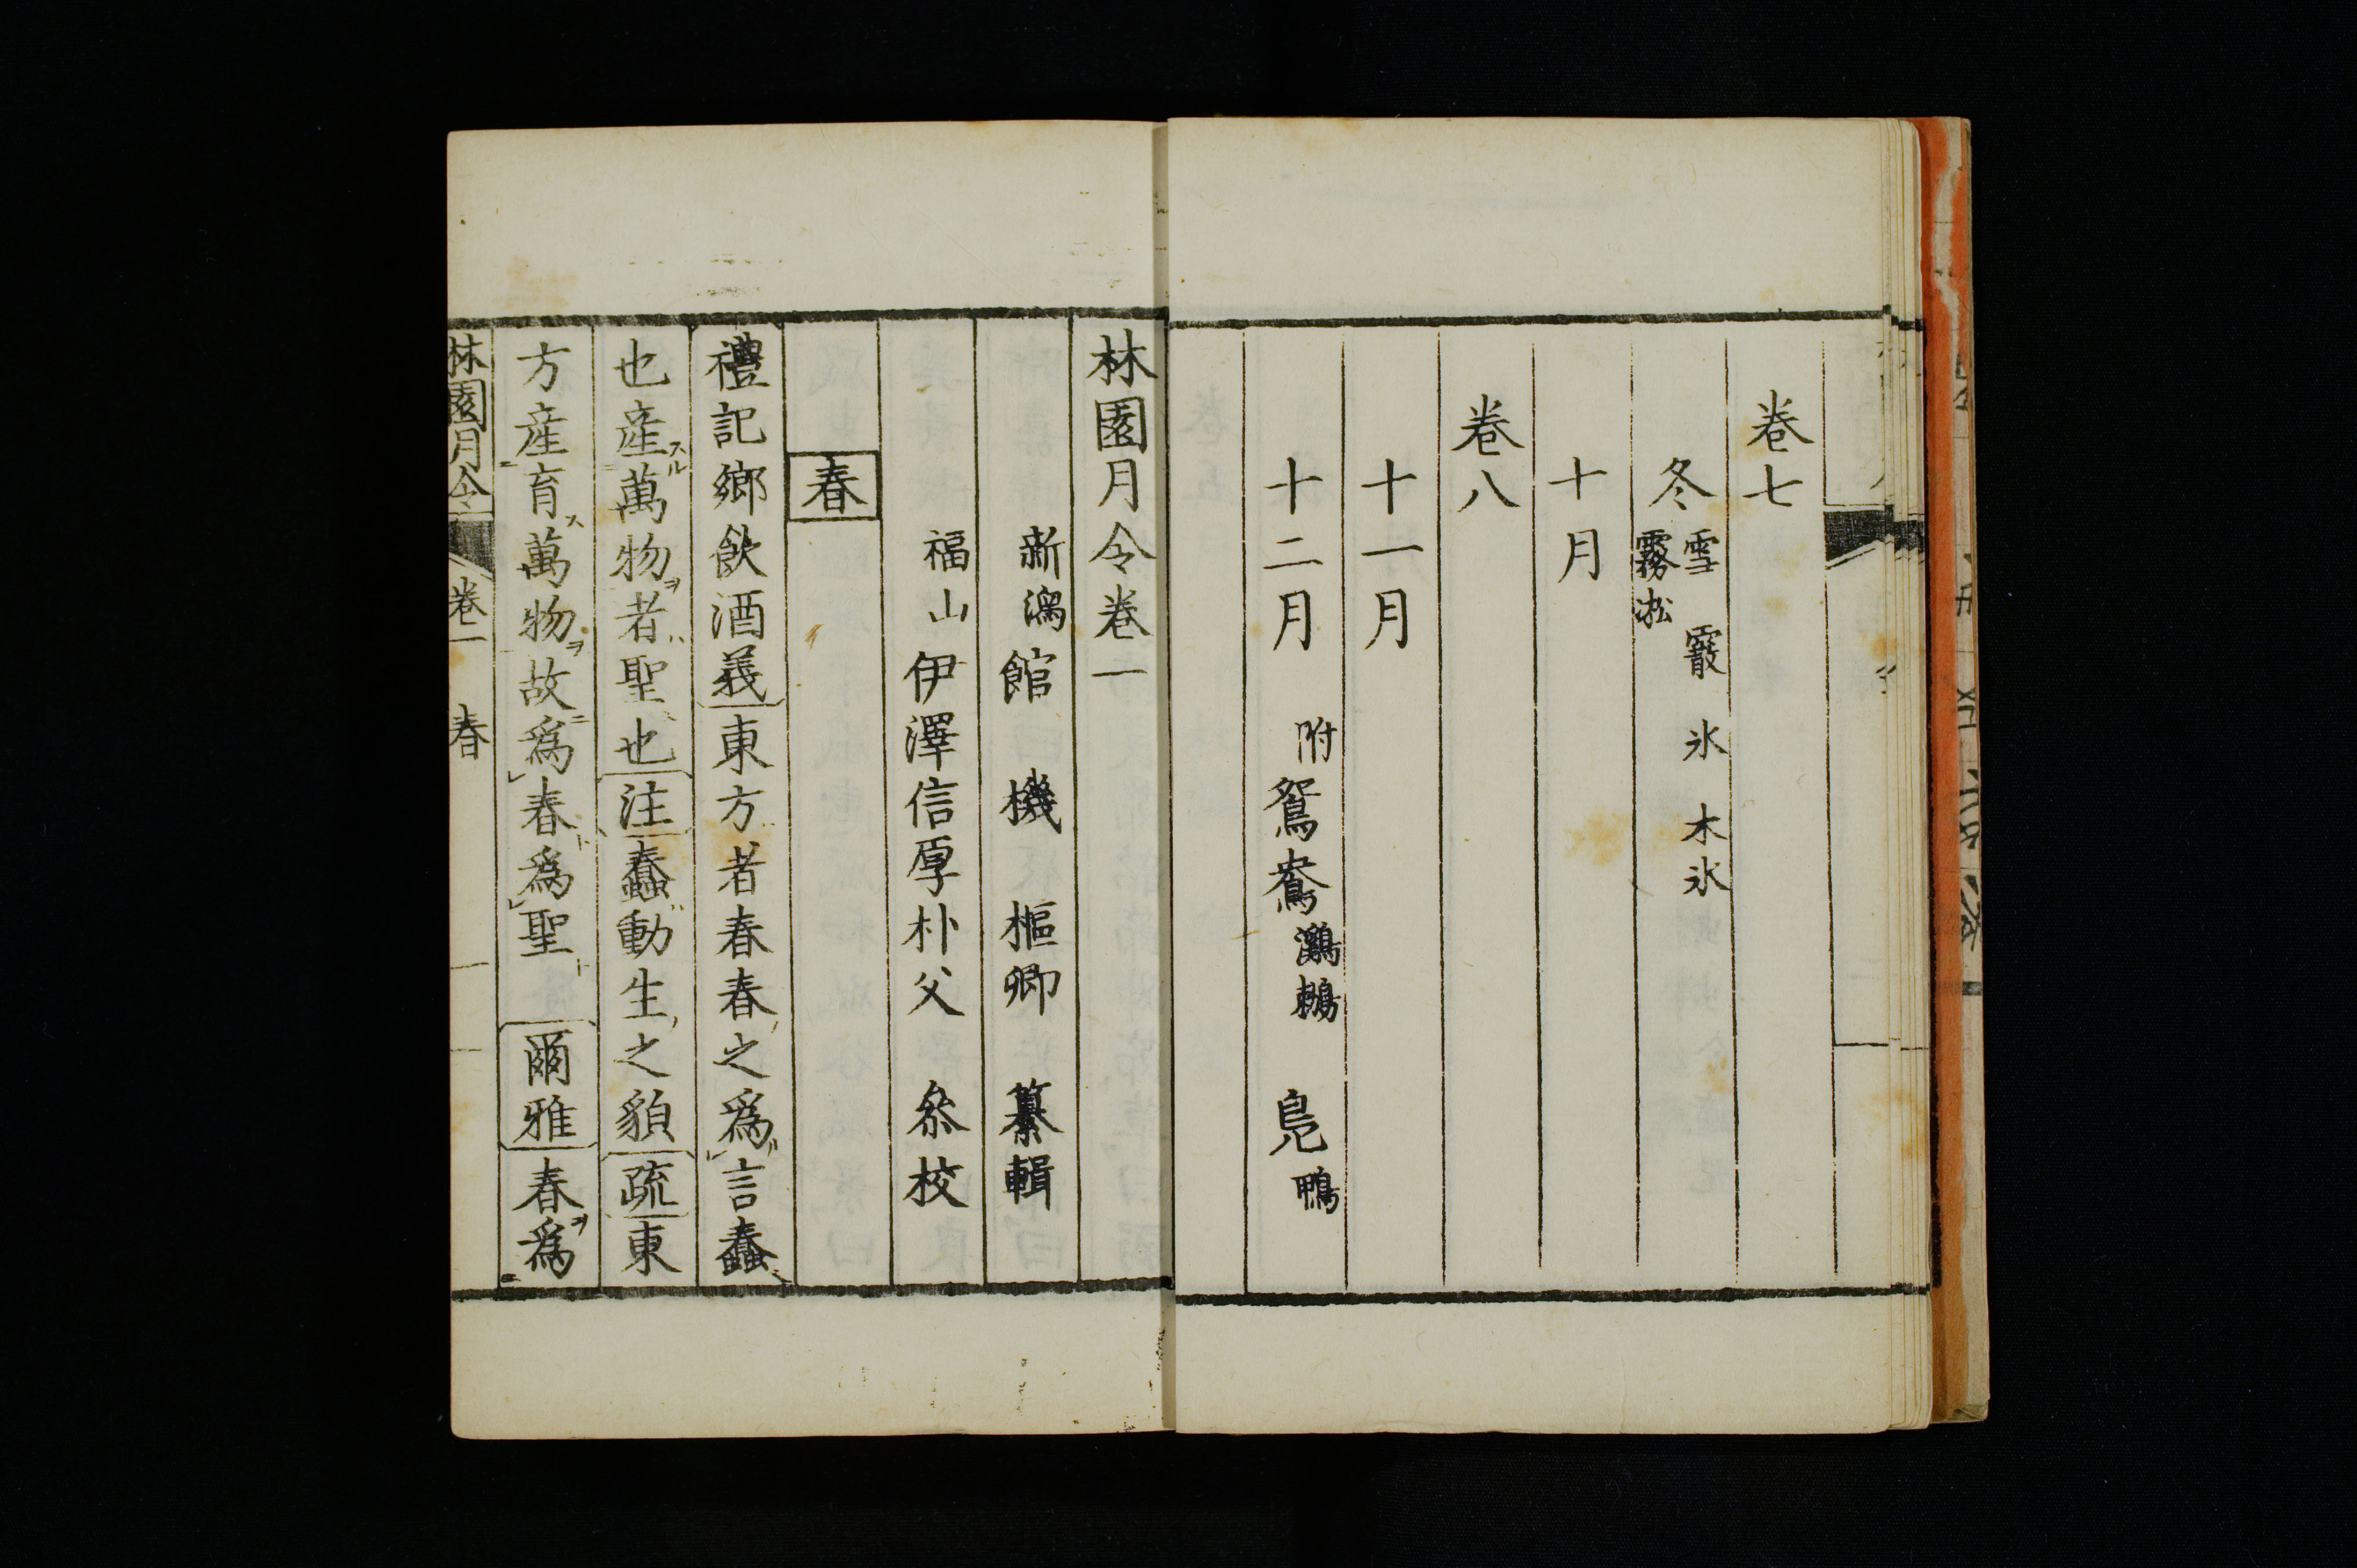 卷七
冬 雪 霰 氷 木氷
霧凇
十月
卷八
十一月
十二月 附鴛鴦鸂鶒 鳧鴨
林園月令卷一
新潟 館 機 樞卿 纂輯
福山 伊澤信厚朴父 叅校
春
禮記鄉飲酒義東方者春春之爲言蠢
也產萬物者聖也注蠢動生之貌疏東
方產育萬物故爲春爲聖 爾雅春爲
林園月令 卷一 春